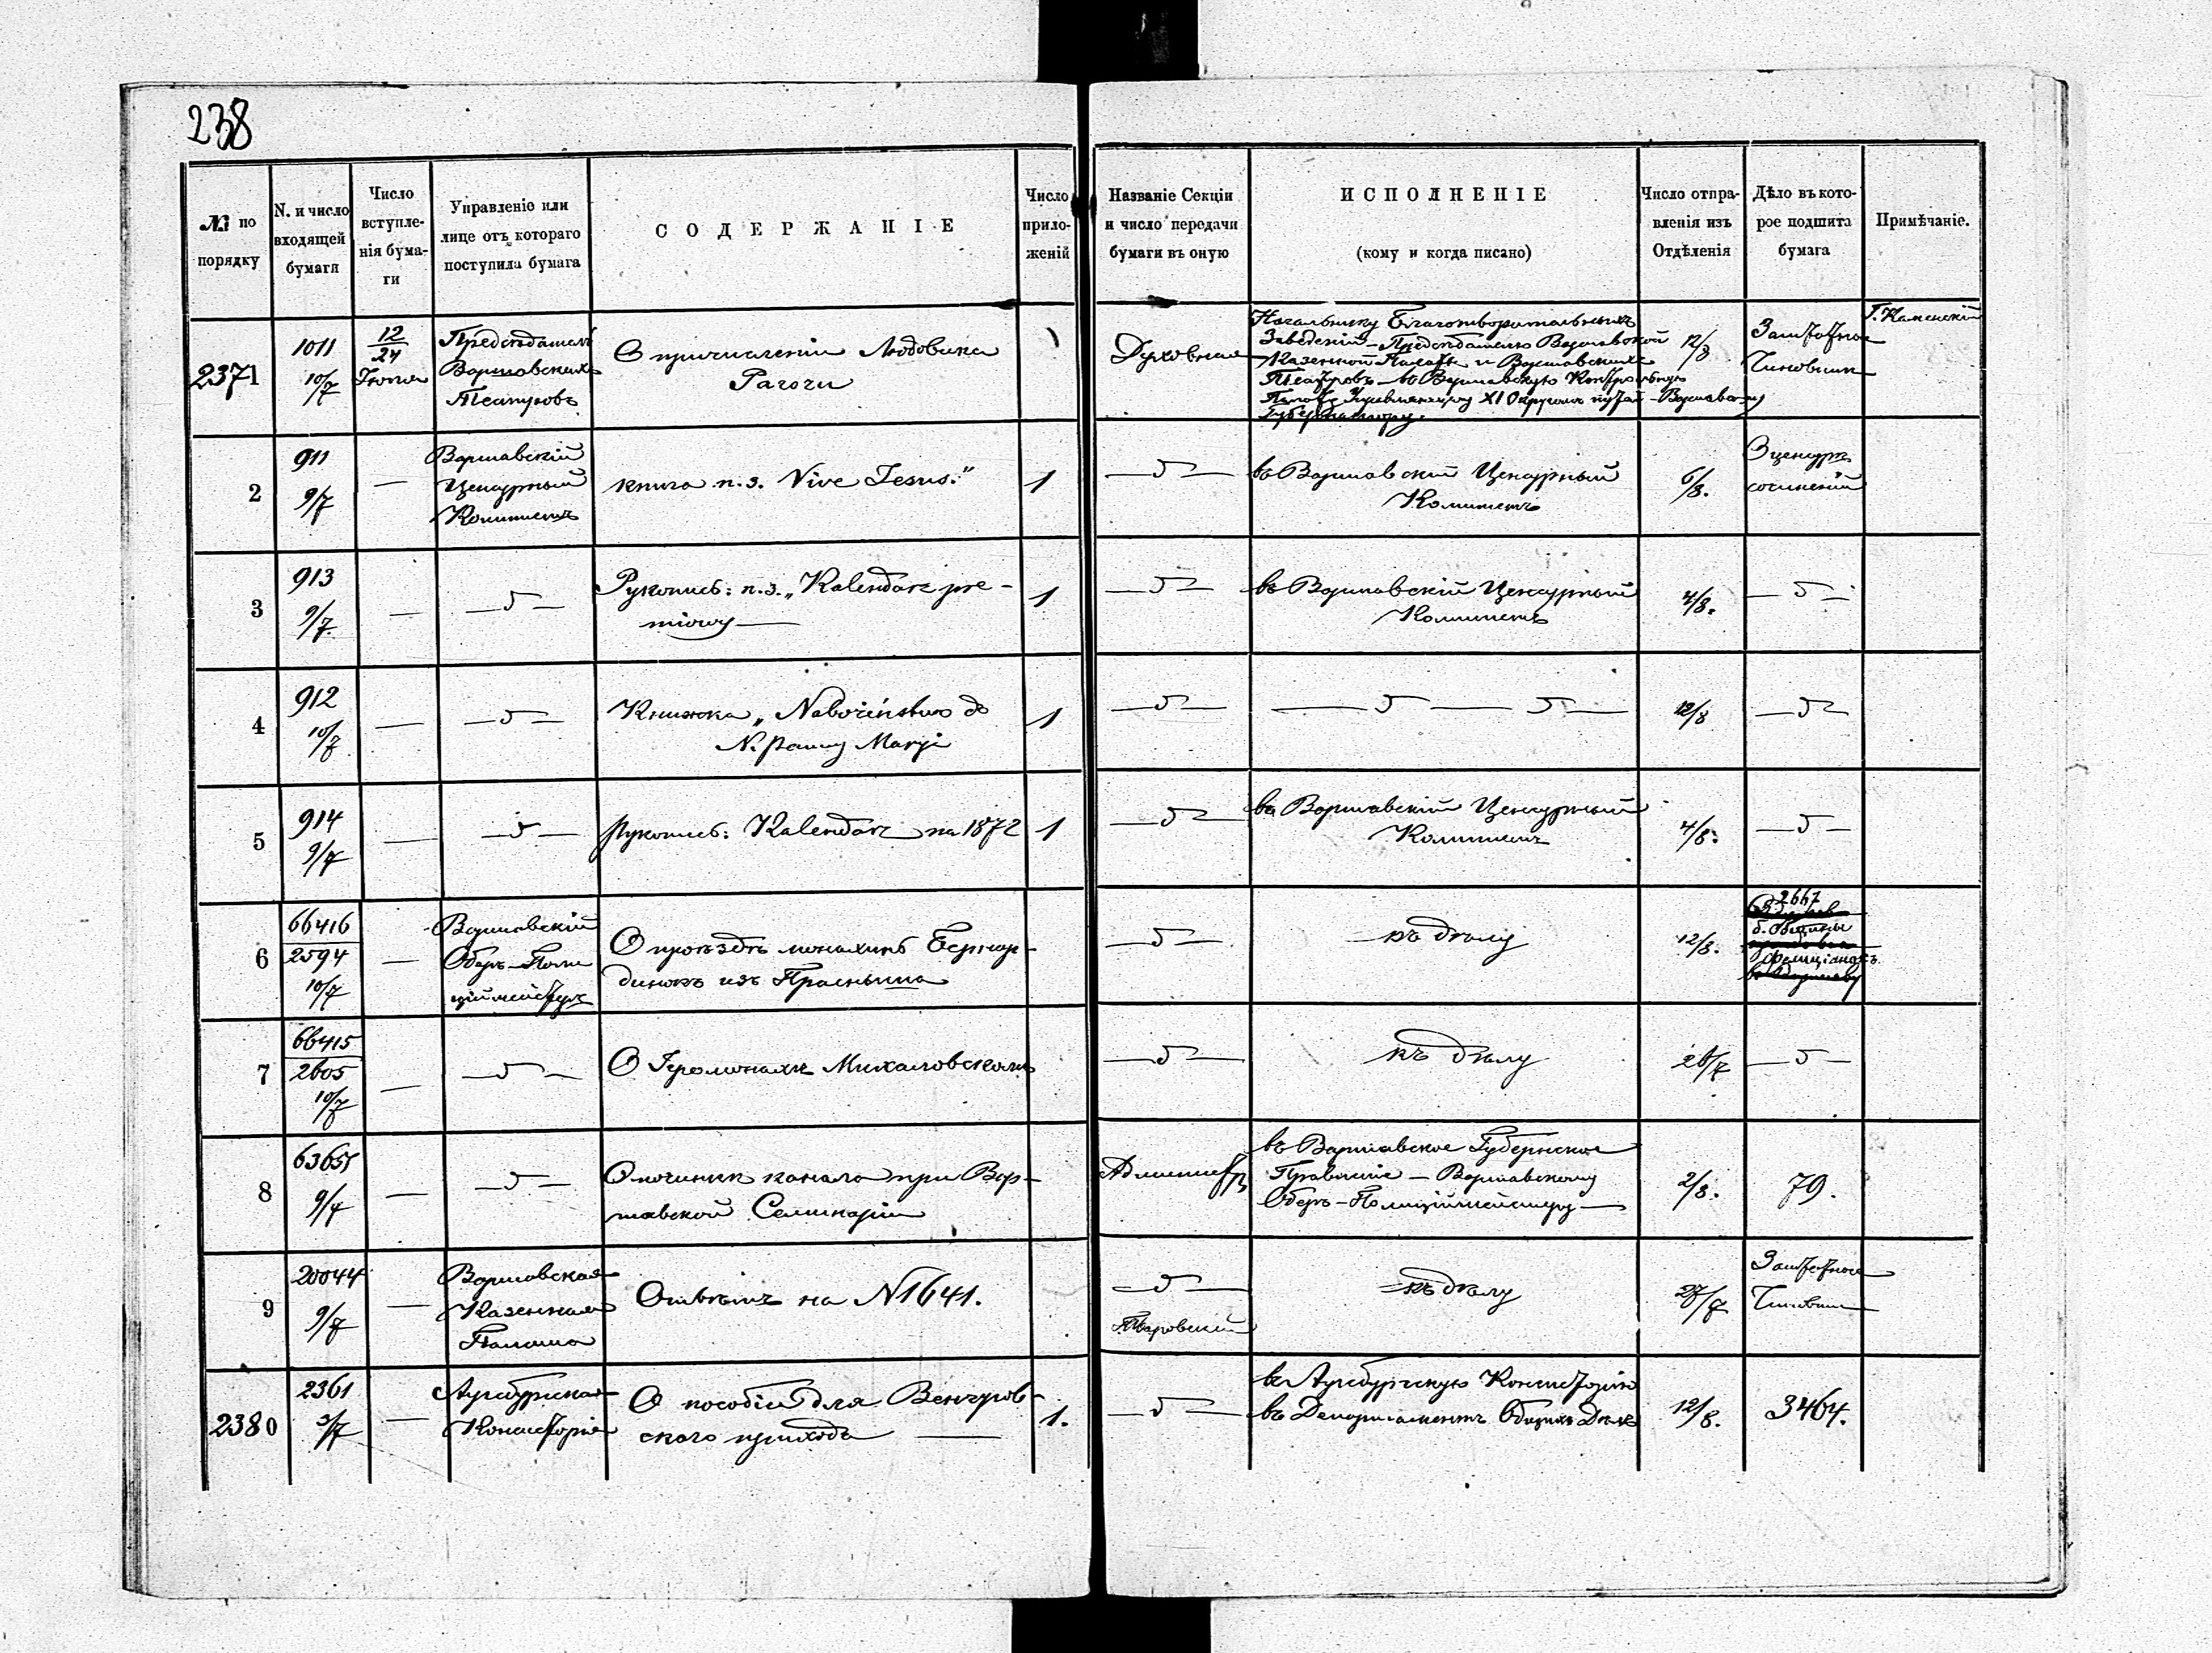 238
№ по порядку
N. и число входящей бумаги
Число вступле-нія бума-ги
Управленіе или лице отъ котораго поступила бумага
СОДЕРЖАНІЕ
Число прило-женій
Названіе Секціи и число передачи бумаги въ оную
ИСПОЛНЕНІЕ
(кому и когда писано)
Число отпра-вленія изъ Отдѣленія
Дѣло въ кото-рое подшита бумага
Примѣчаніе.
2371
1011
10/7
12/24
Іюня
Предсѣдатель
Варшавскихъ
Театровъ
О причисленіи Людовика
Рагочи
Духовная
Начальнику Благотворительныхъ
Заведеній – Предсѣдателю Варшавской
Казенной Палаты и Варшавскихъ
Театровъ – въ Варшавскую Контрольную
Палату Управляющему XI Округомъ путей – Варшавскому
Губернатору.
12/8
Заштатные
Чиновники
Г. Каменскій
2
911
9/7
—
Варшавскій
Цензурный
Комитетъ
книга п. з. Vive Jesus."
1
въ Варшавскій Цензурный
Комитетъ
6/8.
О цензурѣ
сочиненій
3
913
9/7.
—
Рукопись: п. з. „Kalendarz pre-
miowy —
1
въ Варшавскій Цензурный
Комитетъ
4/8.
4
912
10/7
—
Книжка „Nabożeństwo do
N. Panny Marji
1
12/8
5
914
9/7
—
Рукопись: Kalendarz na 1872
1
въ Варшавскій Цензурный
Комитетъ
4/8.
6
66416
2594
10/7
—
Варшавскій
Оберъ-Поли
ціймейстеръ
О проѣздѣ монахинь Бернар-
динокъ изъ Прасныша
къ дѣлу
12/8.
2667
б. Общины
Фелиціанокъ.
7
66415
2605
10/7
—
О Іеромонахѣ Михаловскомъ
къ дѣлу
26/7
8
63655
9/7
—
О починкѣ канала при Вар-
шавской Семинаріи
Администр
въ Варшавское Губернское
Правленіе – Варшавскому
Оберъ-Полиціймейстеру —
2/8.
79.
9
20044
9/7
—
Варшавская
Казенная
Палата
Отвѣтъ на N 1641.
къ дѣлу
27/7
Заштатные
Чиновники
2380
2361
3/7
—
Аугсбургская
Консисторія
О пособіи для Венгров-
скаго прихода —
1.
въ Аугсбургскую Консисторію
въ Департаментъ Общихъ Дѣлъ
12/8.
3464.